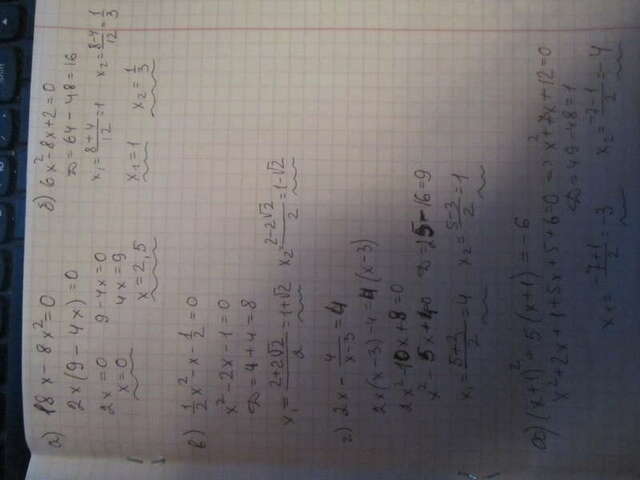 а) 18x - 8x² = 0
2x(9 - 4x) = 0
2x = 0 9 - 4x = 0
x = 0 4x = 9
x = 2,5
б) 6x² - 8x + 2 = 0
D = 64 - 48 = 16
x₁ = (8+4)/12 = 1 x₂ = (8-4)/12 = 1/3
x₁ = 1 x₂ = 1/3
в) 1/2 x² - x - 1/2 = 0
x² - 2x - 1 = 0
D = 4 + 4 = 8
x₁ = (2+2√2)/2 = 1+√2 x₂ = (2-2√2)/2 = 1-√2
г) 2x - 4/(x-3) = 4
2x(x-3) - 4 = 4(x-3)
2x² - 10x + 8 = 0
x² - 5x + 4 = 0 D = 25 - 16 = 9
x₁ = (5+3)/2 = 4 x₂ = (5-3)/2 = 1
(x+1)² + 5(x+1) = -6
x² + 2x + 1 + 5x + 5 + 6 = 0 => x² + 7x + 12 = 0
D = 49 - 48 = 1
x₁ = (-7+1)/2 = -3 x₂ = (-7-1)/2 = -4